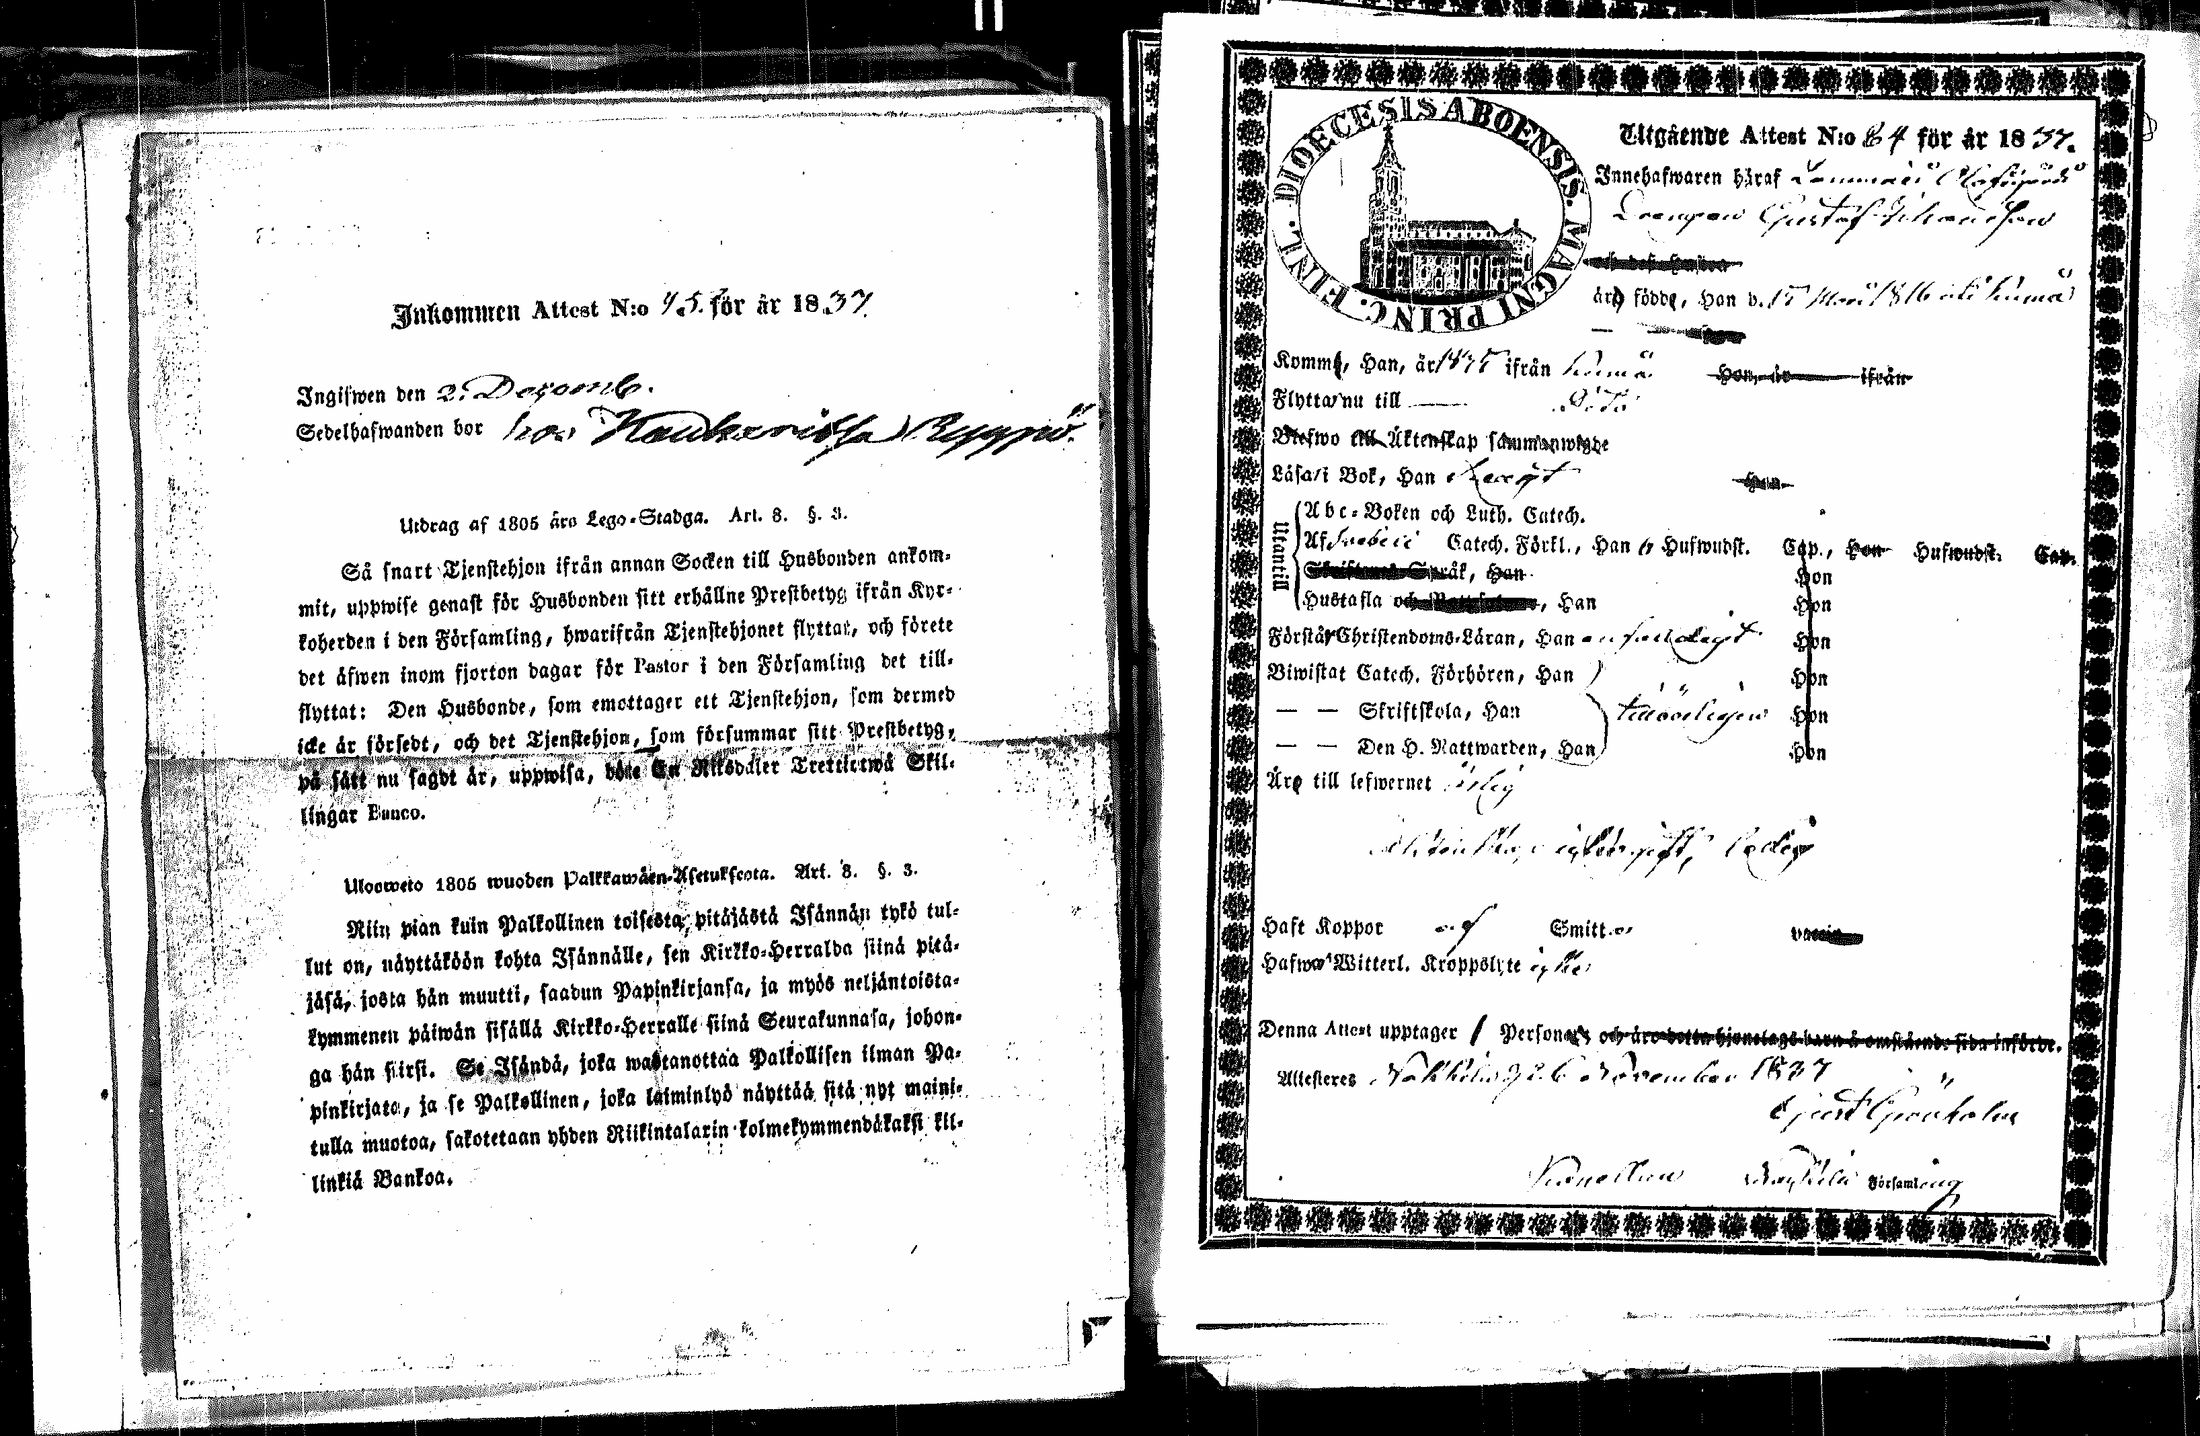 Inkommen Attest N:o 45. för år 1837.
Ingifwen den 2. Decemb.
Sedelhafwanden bor hos
Utdrag af 1805 års Lego-Stadga. Art. 8. §. 3.
Så snart Tjenstehjon ifrån annan Socken till Husbonden ankom-
mit, uppwise genast för Husbonden sitt erhållne Prestbetyg ifrån Kyr-
koherden i den Församling, hwarifrån Tjenstehjonet flyttat, och förete
det äfwen inom fjorton dagar för Pastor i den Församling det till-
flyttat: Den Husbonde, som emottager ett Tjenstehjon, som dermed
icke är försedt, och det Tjenstehjon, som försummar sitt Prestbetyg,
på sätt nu sagdt är, uppwisa, böte En Riksdaler Trettietwå Skil-
lingar Banco.
Ulosweto 1805 wuoden Palkkawäen-Asetuksesta. Art. 8. §. 3.
Niin pian kuin Palkollinen toisesta pitäjästä Isännän tykö tul-
lut on, näyttäköön kohta Isännälle, sen Kirkko-Herralda siinä pitä-
jäsä, josta hän muutti, saadun Papinkirjansa, ja myös neljäntoista-
kymmenen päiwän sisällä Kirkko-Herralle siinä Seurakunnasa, johon-
ga hän siirsi. Se Isändä, joka wastanottaa Palkollisen ilman Pa-
pinkirjata, ja se Palkollinen, joka laiminlyö näyttää sitä nyt maini-
tulla muotoa, sakotetaan yhden Riikintalarin kolmekymmendäkaksi kil-
linkiä Bankoa.
FINL. DIOECESIS ABOENSIS. MAGNI PRINC.
Utgående Attest N:o 84 för år 1837.
Innehafwaren häraf
Drengen Gustaf Johansson
äro födde, Han d. 15 Maii 1816 uti Kumå
Komme, Han, år 1835 ifrån Kumå Hon, år ifrån
Flyttar nu till
Blefwo till Äktenskap sammanwigde
Läsa i Bok, Han Hon
Utantill
Abc-Boken och Luth. Catech.
Af Svebelii Catech. Förkl., Han 6 Hufwudst. Cap., Hon Hufwudst. Cap.
Skriftenes Språk, Han Hon
Hustafla och, Han Hon
Förstår Christendoms-Läran, Han enfaldigt Hon
Biwistat Catech. Förhören, Han Hon
— — Skriftskola, Han tillbörligen Hon
— — Den H. Nattwarden, Han Hon
Äro till lefwernet ärlig
till äktenskap ledig
Haft Koppor af Smitt.
Hafwa Witterl. Kroppslyte icke
Denna Attest upptager 1 Person och äro detta hjonelags barn å omstående sida införde.
Attesteres Nakkila d. 26 November 1837
Nakkila Församling